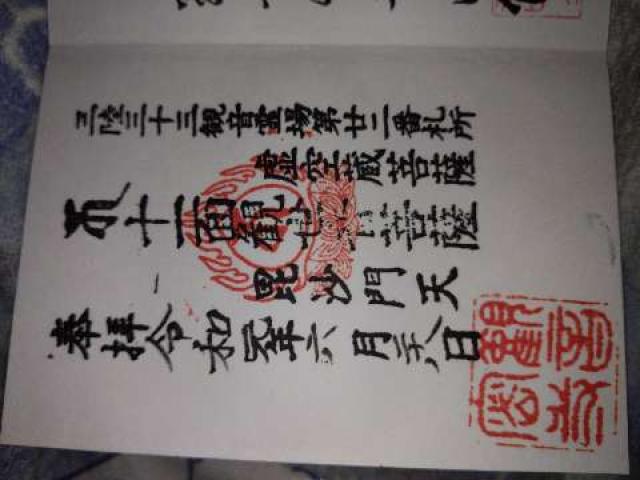 三陸三十三観音霊場第廿二番札所
虚空蔵菩薩
十一面観世音菩薩
毘沙門天
奉拝令和元年六月二十八日